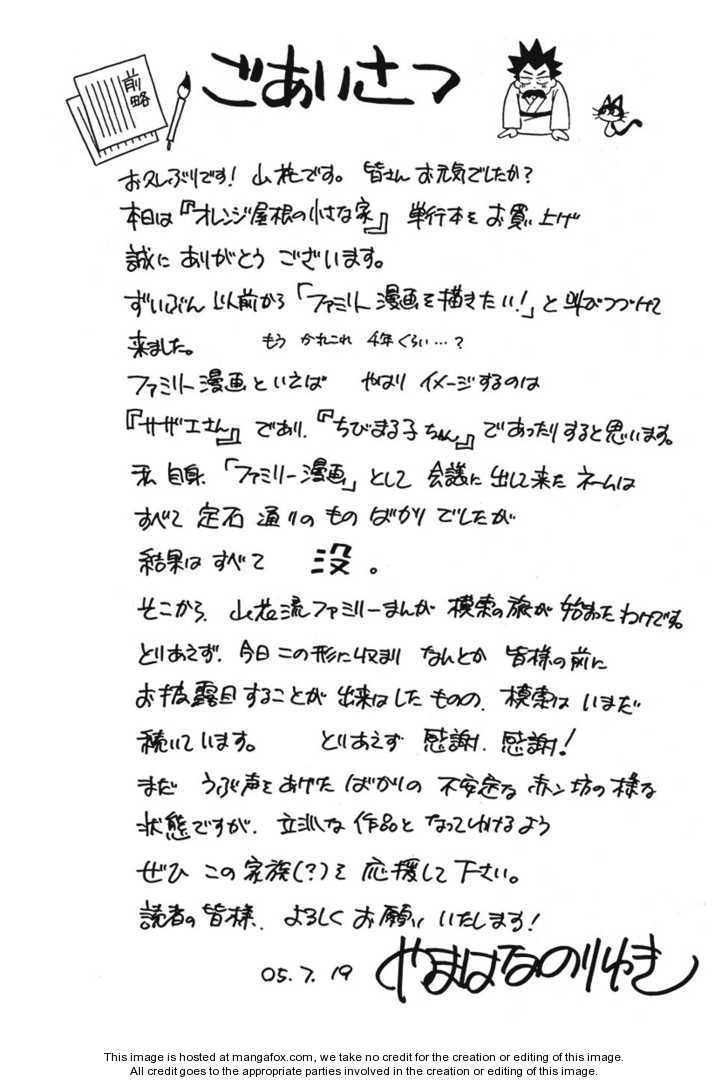 前略
ごあいさつ
お久しぶりです! 山花です。 皆さん お元気でしたか?
本日は『オレンジ屋根の小さな家』 単行本を お買い上げ
誠に ありがとう ございます。
ずいぶん 以前から 「ファミリー漫画を描きたい!」と 叫びつづけて
来ました。 もう かれこれ 4年くらい…?
ファミリー漫画といえば やはり イメージするのは
『サザエさん』であり、『ちびまる子ちゃん』であったりすると思います。
私自身、「ファミリー漫画」として 会議に出して来た ネームは
すべて 定石通りの もの ばかり でしたが
結果は すべて 没。
そこから、山花流ファミリーまんが 模索の旅が 始まったわけです。
とりあえず、今日この形に収まり なんとか 皆様の前に
お披露目することが 出来はしたものの、模索は いまだ
続いています。 とりあえず 感謝、感謝!
まだ うぶ声をあげた ばかりの 不安定な 赤ン坊の様な
状態ですが、立派な 作品と なってゆけるよう
ぜひ この 家族(?)を 応援して 下さい。
読者の皆様、よろしく お願い いたします!
05.7.19 やまはなのりゆき
This image is hosted at mangafox.com, we take no credit for the creation or editing of this image.
All credit goes to the appropriate parties involved in the creation or editing of this image.